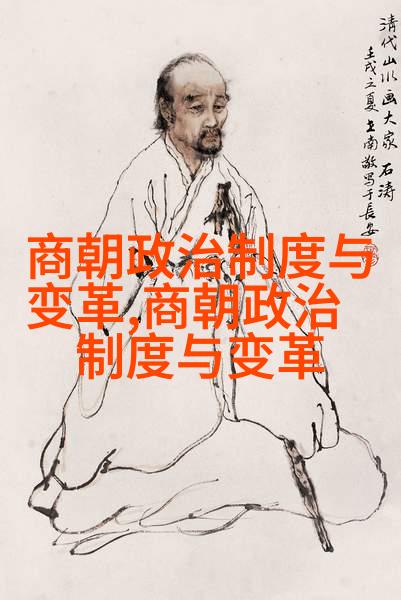 清代山水画大家 石涛
壬戌之夏 南敬写于長安
商朝政治制度与
变革,商朝政治
制度与变革